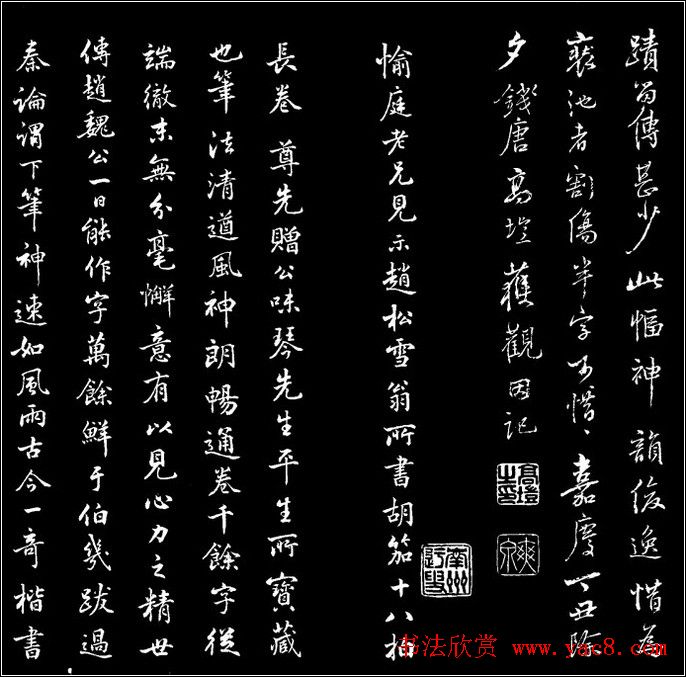 蹟留傳甚少此幅神韻後逸惜為
裝池者割傷半字可惜、嘉慶丁丑除
夕錢唐高塏獲觀因記
愉庭老兄見示趙松雪翁所書胡笳十八拍
長卷尊先贈公味琴先生平生所寶藏
也筆法清遒風神朗暢通卷千餘字從
端徹末無分毫懈意有以見心力之精世
傳趙魏公一日能作字萬餘鮮于伯幾跋過
秦論謂下筆神速如風雨古今一奇楷書
書法欣赏 www.yac8.com